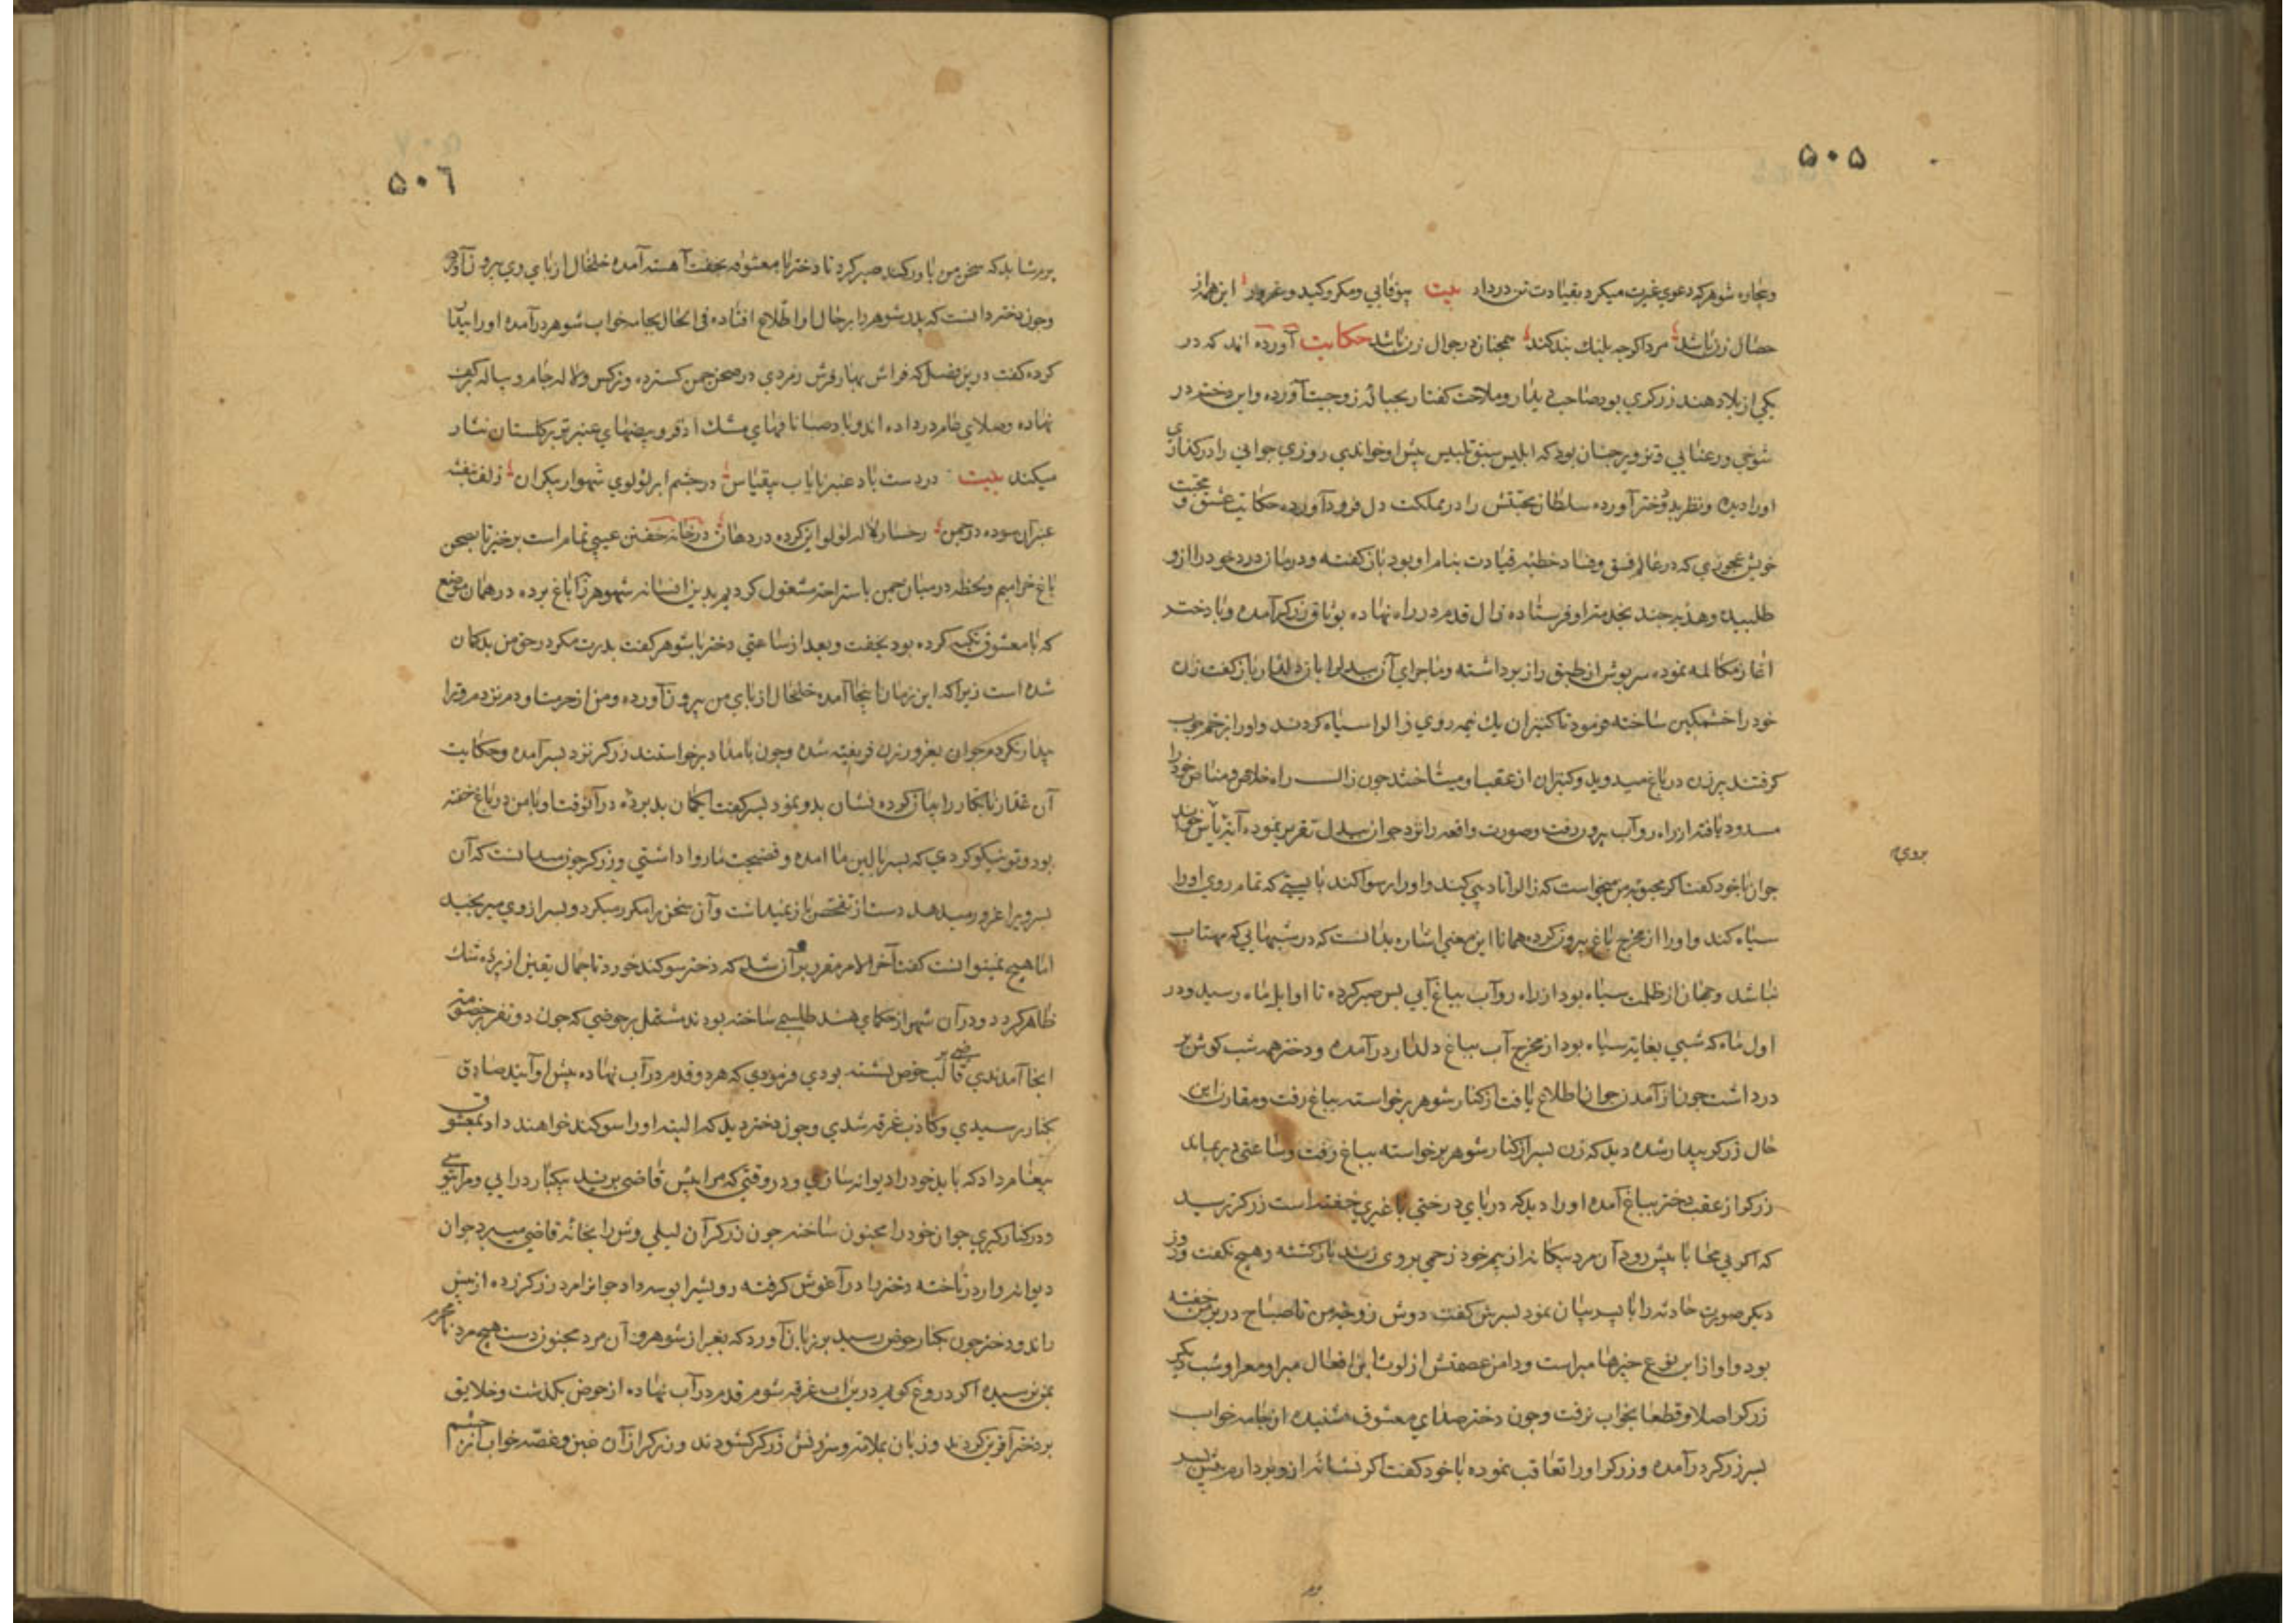 ۵۰۵
وبیچاره شوهر که دعوی غیرت میکرد بقیادت تن درداد بیت بیوفایی ومکر وکید وغرور این همه از
خصال زن باشد مرد اکر چه بلنك بند کند همچنان در جوال زن باشد حکایت آورده اند که در
یکی از بلاد هند زرکری بود صاحب دیدار وملاحت کفتار بحباله زوجیت آورده واین دختر در
شوخی ورعنایی وتزویر چنان بود که ابلیس سبق تلبیس پیش او خواندی روزی جوانی را در کذار
اورا دیده ونظر بدختر آورده سلطان محبتش را در مملکت دل فرود آورده حکایت عشق و محبت
خویش عجوزی که در عالم فسق وفساد خطبه قیادت بنام او بود باز کفته ودرمان درد خود را ازو
طلبیده وهدیه چند بخدمت او فرستاده زال قدم در راه نهاده بوثاق زرکر آمده وبا دختر
اغاز مکالمه نموده سرپوش از طبق راز برداشته وماجرای آن بیدل را با دلدار باز کفت زن
خود را خشمکین ساخته فرمود تا کنیزان یك نیمه روی زال را سیاه کردند واورا بزخم چوب
کرفتند پیرزن در باغ میدوید وکنیزان از عقب او میتاختند چون زال راه خلاص ومناص خود را
مسدود یافت از راه رو آب بیرون رفت وصورت واقعه را نزد جوان بیدل تقریر نموده آیة یأس خواند
بروی
جوان با خود کفت اکر محبوبه من میخواست که زال را تادیبی کند واورا رسوا کند بایستی که تمام روی اورا
سیاه کند واورا از مخرج باغ بیرون کرده همانا این معنی اشاره بدانست که در شبهایی که مهتاب
نباشد وجهان از ظلمت سیاه بود از راه رو آب بباغ آیی پس صبر کرده تا اوایل ماه رسید ودر
اول ماه که شبی بغایت سیاه بود از مخرج آب بباغ دلدار درآمده ودختر همه شب کوش بر
در داشت چون از آمدن جوان اطلاع یافت از کنار شوهر برخواسته بباغ رفت ومقارن این
حال زرکر بیدار شده دید که زن پسر از کنار شوهر برخواسته بباغ رفت وساعتی دیر بماند
زرکر از عقب دختر بباغ آمده اورا دید که در پای درختی با غیری خفته است زرکر ترسید
که اکر بی محابا پیش رود آن مرد بیکانه از بیم خود زخمی بروی زند باز کشته وهیچ نکفت وروز
دیکر صورت حادثه را با پسر بیان نمود پسرش کفت دوش زوجه من تا صباح در بر من خفته
بود واو از این نوع خبرها مبراست ودامن عصمتش از لوث این افعال مبرا ومعرا وشب دیکر
زرکر اصلا وقطعا بخواب نرفت وچون دختر صدای معشوق شنیده از جامه خواب
پسر زرکر درآمده وزرکر اورا تعاقب نموده با خود کفت اکر نشانه ازو بردارم پیش پسر
۵۰۶
برم شاید که سخن من باور کند صبر کرد تا دختر با معشوقه بخفت آهسته آمده خلخال از پای وی بیرون آورد
وچون دختر دانست که پدر شوهر را بر حال او اطلاع افتاده فی الحال بجامه خواب شوهر درآمده اورا بیدار
کرده کفت درین فصل که فراش بهار فرش زمردی در صحن چمن کسترده ونرکس ولاله جام وپیاله بر کف
نهاده وصلای عام در داده اند وباد صبا نافهای مشك اذفر وبیضهای عنبر تر بر کلستان نثار
میکند بیت در دست باد عنبر نایاب بیقیاس در چشم ابر لؤلوی شهوار بیکران زلف بنفشه
عنبران سوده در چمن رخسار لاله لولو این کرده در دهان در خانه خفتن عیبی تمام است برخیز تا بصحن
باغ خرامیم ولحظه در میان چمن باستراحت مشغول کردیم بدین افسانه شوهر را بباغ برده در همان موضع
که با معشوق تکیه کرده بود بخفت وبعد از ساعتی دختر با شوهر کفت پدرت مکر در حق من بدکمان
شده است زیرا که این زمان اینجا آمده خلخال از پای من بیرون آورده ومن از حرمت او دم نزدم وترا
بیدار نکردم جوان بغرور زن فریفته شده وچون بامداد برخواستند زرکر نزد پسر آمده وحکایت
آن غدار نابکار را بیان کرده نشان بدو نمود پسر کفت ایکمان بد برده در آنوقت او با من در باغ خفته
بود وتو نیکو کردی که بسر بالین ما امده وفضیحت ما روا داشتی وزرکر چون میدانست که آن
پسر ویرا غرور میدهد دست از تفحص باز نمیداشت وآن سخن را مکرر میکرد وپسر از وی میرنجید
اما هیچ نمیتوانست کفت آخر الامر مقرر بر آن شد که دختر سوکند خورد تا جمال یقین از پرده شك
ظاهر کردد ودر آن شهر از حکمای هند طلسمی ساخته بودند مشتمل بر حوضی که چون دو نفر بخصومت
انجا آمدندی قاضی بر لب حوض نشسته بودی وفرمودی که هر دو قدم در آب نهاده پیش او آیند صادق
بکنار رسیدی وکاذب غرقه شدی وچون دختر دید که البته اورا سوکند خواهند داد بمعشوق
پیغام داد که باید خود را دیوانه سازی ودر وقتی که مرا پیش قاضی برند بیکبار درآیی ومرا ببوسی
ودر کنار کیری جوان خود را مجنون ساخته چون زرکر آن لیلی وش را بخانه قاضی میبرد جوان
دیوانه وار درتاخته دختر را در آغوش کرفته رویش را بوسه داد جوانرا مرد زرکر زده از پیش
راند ودختر چون بکنار حوض رسید بر زبان آورد که بغیر از شوهر وآن مرد مجنون دست هیچ مرد نامحرم
بمن نرسیده اکر دروغ کویم درین آب غرقه شوم قدم در آب نهاده از حوض بکذشت وخلایق
بر دختر آفرین کردند وزبان بملامت وسرزنش زرکر کشودند وزرکر از آن غبن وغصه خواب از چشم